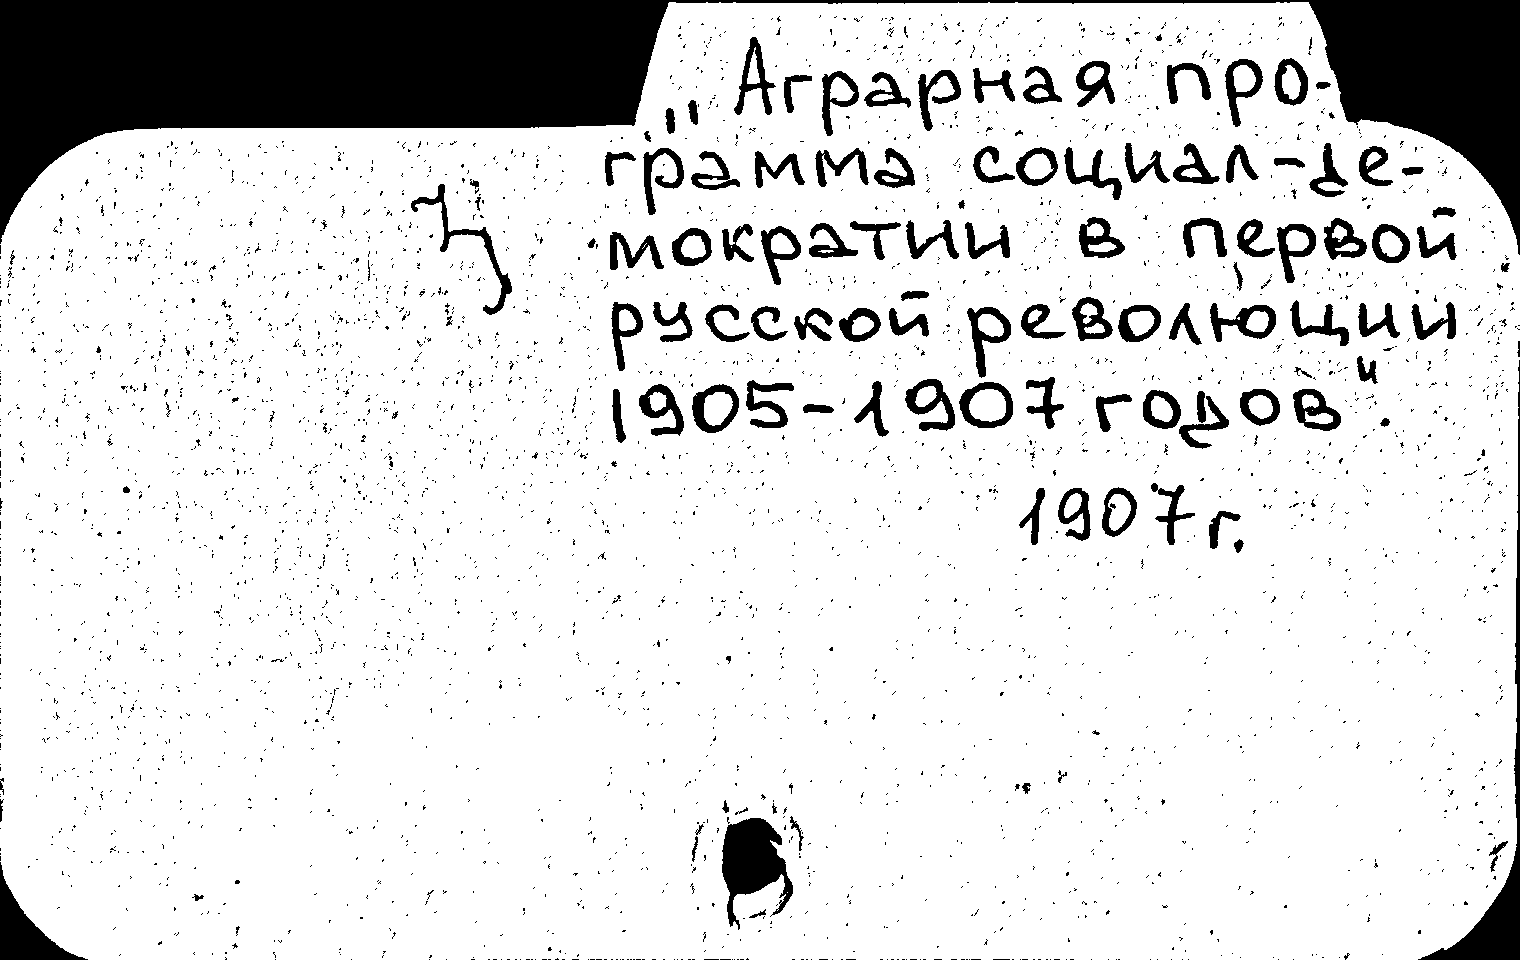 „Аграрная про-
грамма социал-де-
мократии в первой
русской революции
1905-1907 годов".
1907 г.